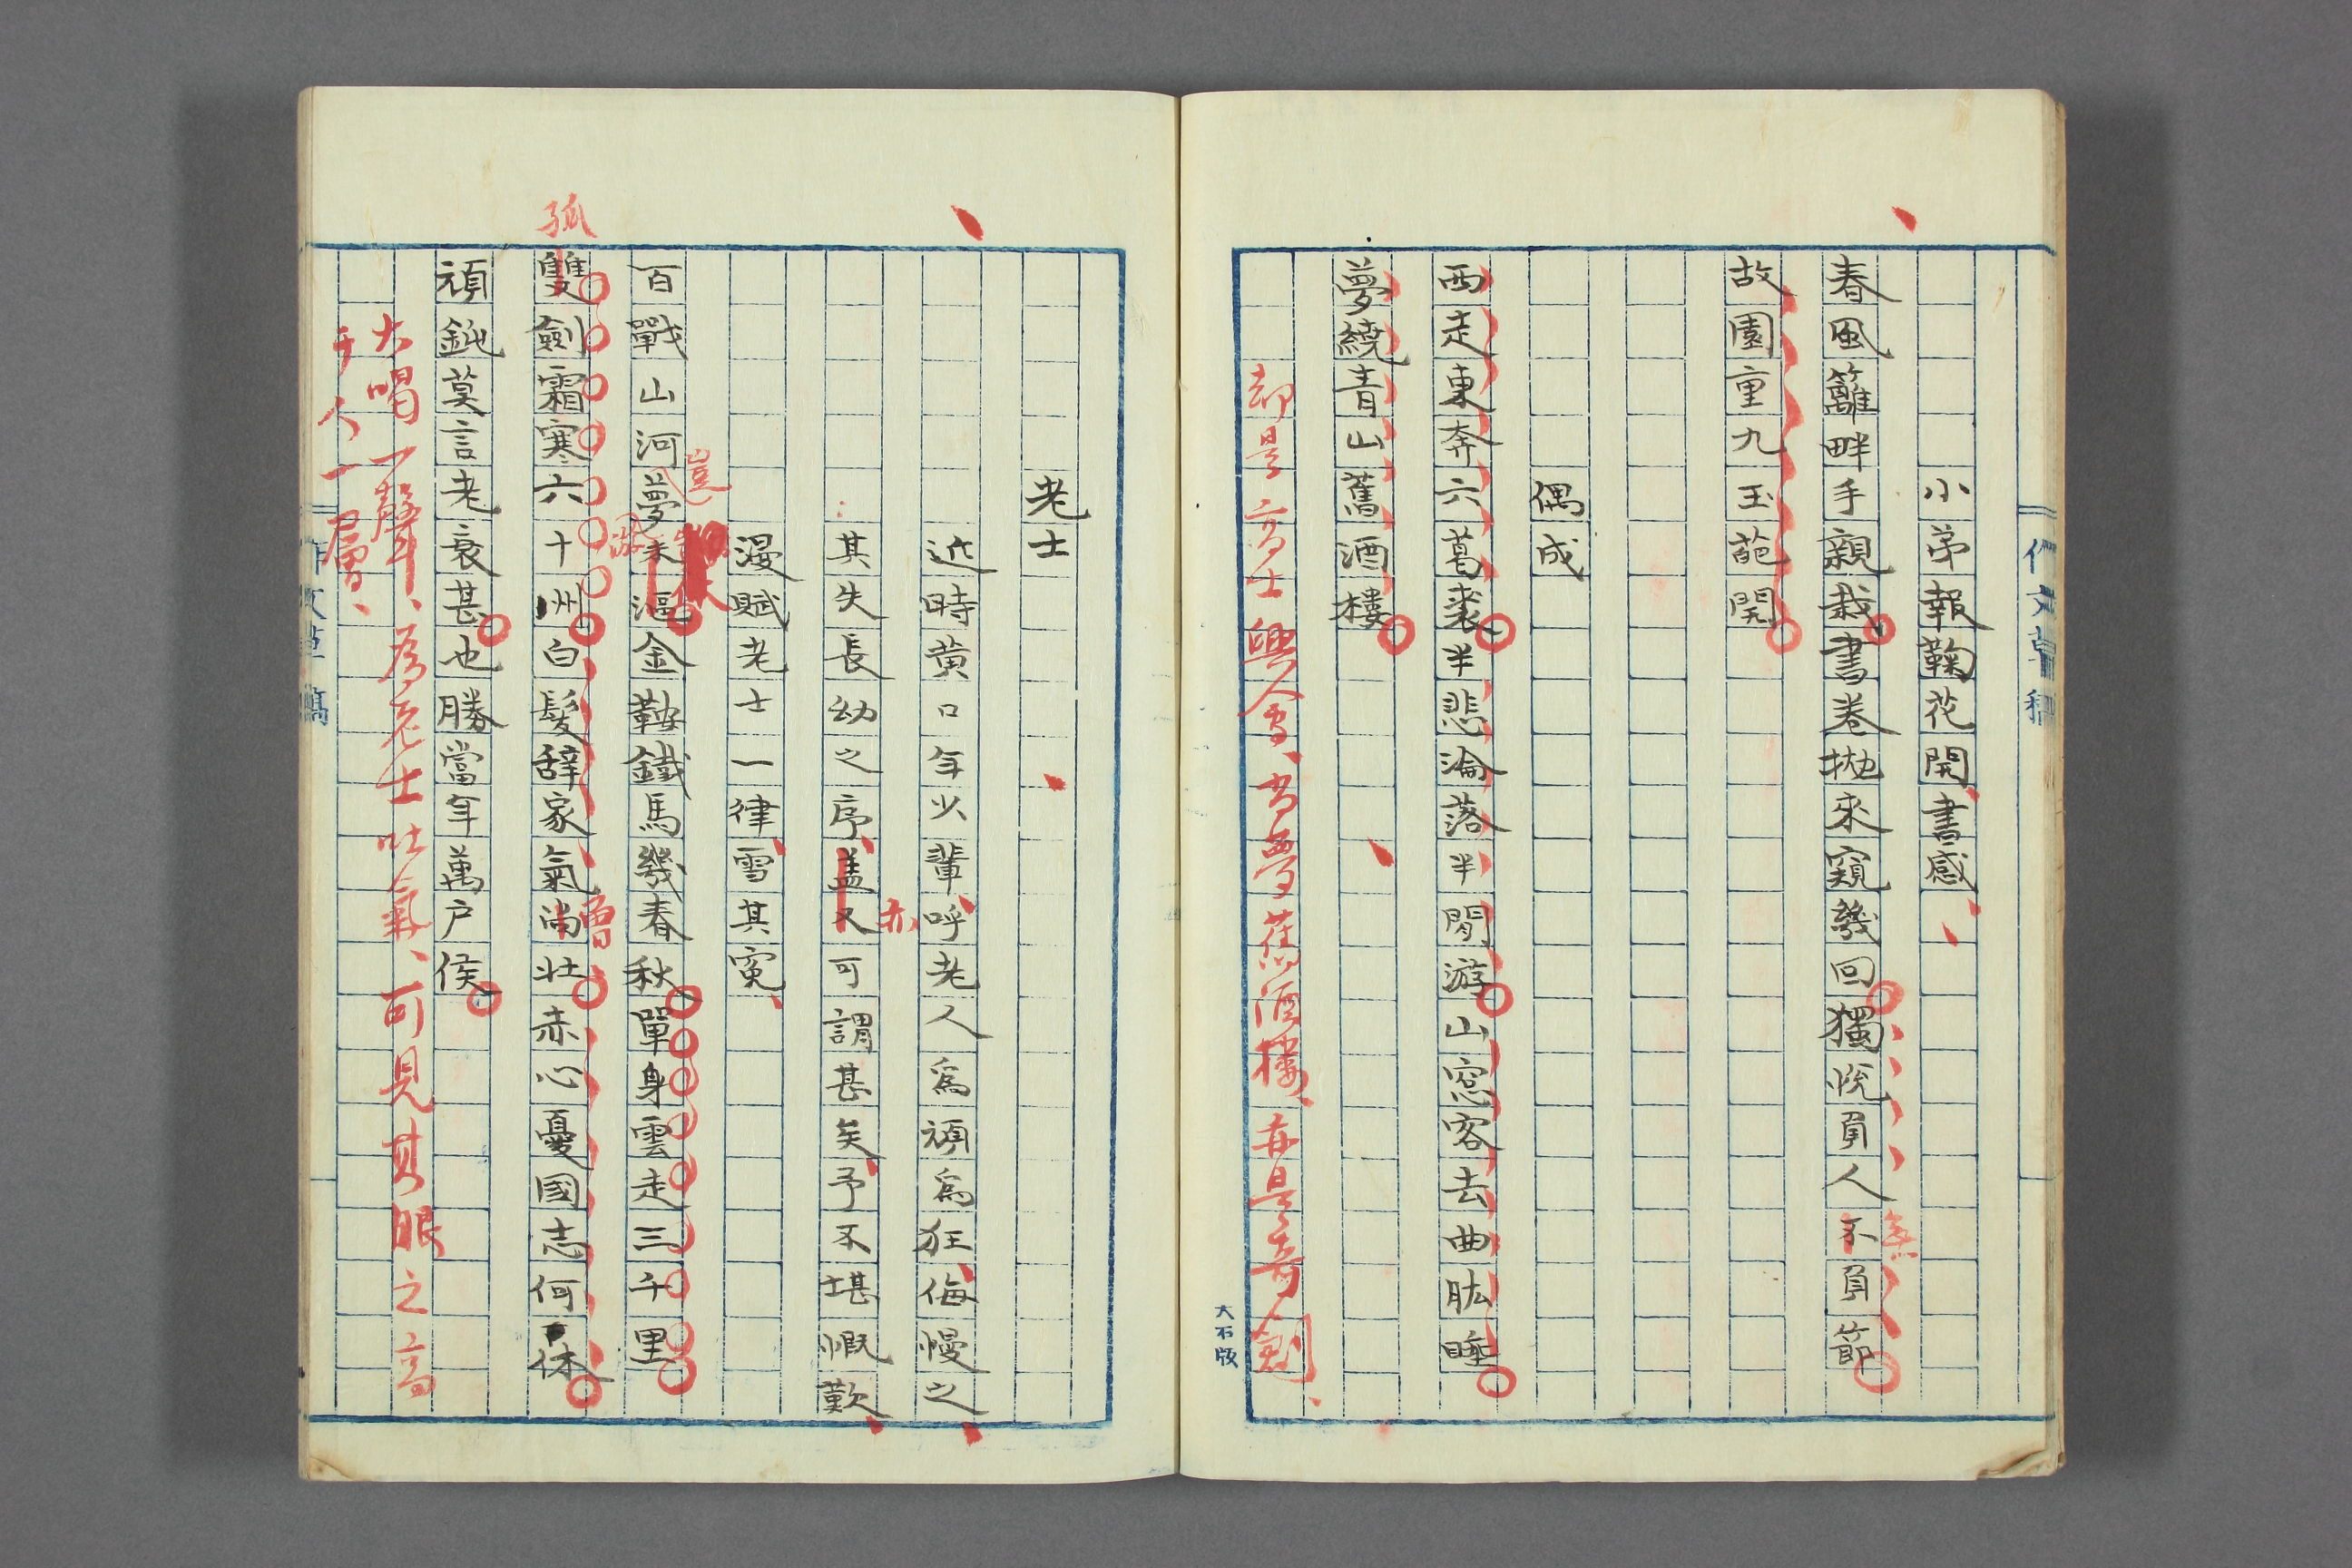 小弟報鞠花開書感
春風籬畔手親栽書卷拋來窺幾回獨悅負人不負節
無
故園重九玉葩開
偶成
西走東奔六葛裘半悲淪落半閒游山窓客去曲肱睡
夢繞青山舊酒樓
却是高士興會、尚夢舊酒樓、亦是奇
大石版
老士
近時黄口年少輩呼老人爲頑爲狂侮慢之
其失長幼之序盖又可謂甚矣予不堪慨歎
亦
漫賦老士一律雪其寃
百戰山河夢未漚金鞍鐵馬幾春秋單身雲走三千里
豈
孤
雙劍霜寒六十州白髮辞家氣尚壯赤心憂國志何休
頑鈍莫言老衰甚也勝當年萬户侯
大喝一聲、爲老士吐氣、可見其眼之高
于人一層、